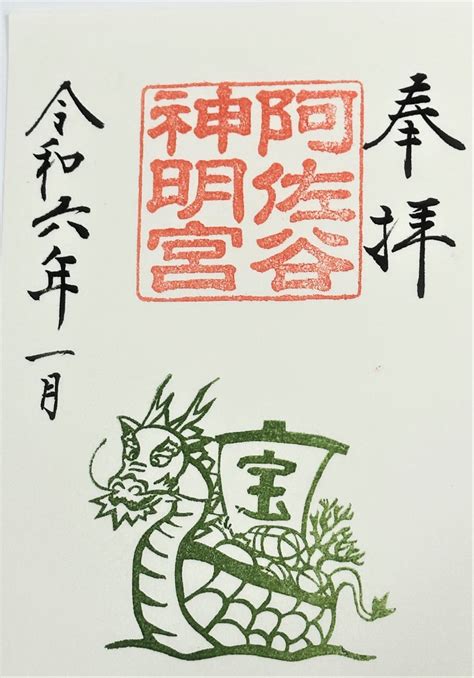 奉拝
阿佐谷
神明宮
令和六年一月
宝